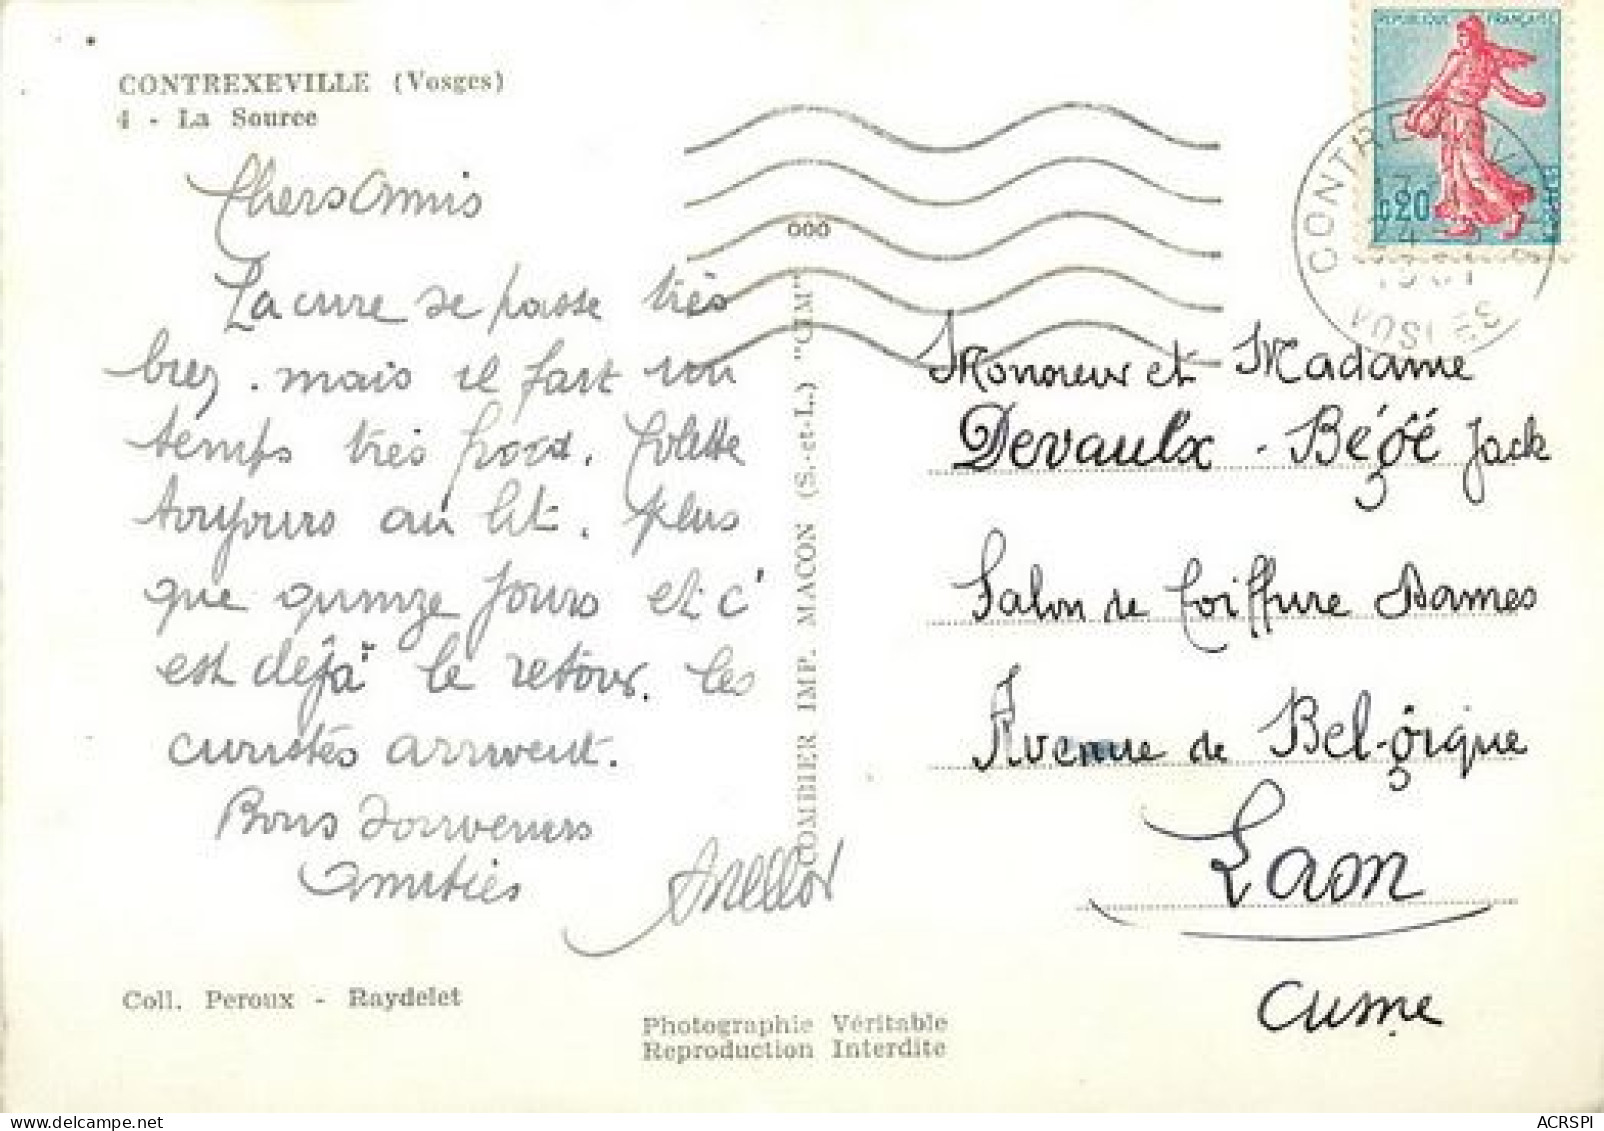 CONTREXEVILLE (Vosges)
4 - La Source
Chers Amis
La cure se passe très
bien. mais il fait un
temps très froid. Colette
toujours au lit. Plus
que quinze jours et c'
est déjà le retour. Les
curistes arrivent.
Bons Souvenirs
Amitiés
Coll. Peroux - Raydelet
Photographie Véritable
Reproduction Interdite
COMBIER IMP. MACON (S.-et-L.) "CIM"
000
REPUBLIQUE FRANÇAISE
0,20
POSTES
CONTREXEVILLE
17
24
1961
VOSGES
Monsieur et Madame
Devaulx - Bégé Jack
Salon de Coiffure Dames
Avenue de Belgique
Laon
Aisne
ACRSPI